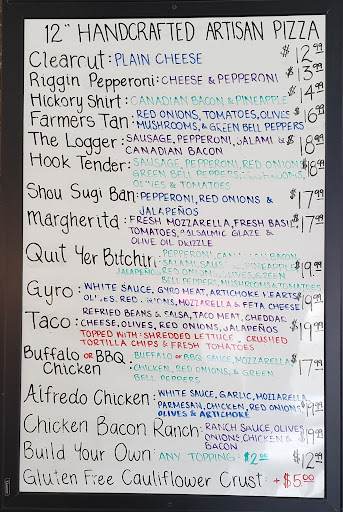 12" HANDCRAFTED ARTISAN PIZZA
Clearcut: PLAIN CHEESE $12.99
Riggin Pepperoni: CHEESE & PEPPERONI $13.99
Hickory Shirt: CANADIAN BACON & PINEAPPLE $14.99
Farmers Tan: RED ONIONS, TOMATOES, OLIVES $16.99
MUSHROOMS, & GREEN BELL PEPPERS
The Logger: SAUSAGE, PEPPERONI, SALAMI & $18.99
CANADIAN BACON
Hook Tender: SAUSAGE, PEPPERONI, RED ONIONS $18.99
GREEN BELL PEPPERS, MUSHROOMS,
OLIVES & TOMATOES
Shou Sugi Ban: PEPPERONI, RED ONIONS & $17.99
JALAPEÑOS
Margherita: FRESH MOZZARELLA, FRESH BASIL $17.99
TOMATOES, BALSALMIC GLAZE &
OLIVE OIL DRIZZLE
Quit Yer Bitchin: PEPPERONI, CANADIAN BACON,
SALAMI, PINEAPPLE $19.99
JALAPEÑOS, RED ONIONS, OLIVES, GREEN
BELL PEPPERS, MUSHROOMS & TOMATOES
Gyro: WHITE SAUCE, GYRO MEAT, ARTICHOKE HEARTS
OLIVES, RED ONIONS, MOZZARELLA & FETA CHEESE $19.99
Taco: REFRIED BEANS & SALSA, TACO MEAT, CHEDDAR
CHEESE, OLIVES, RED ONIONS, JALAPEÑOS $19.99
TOPPED WITH: SHREDDED LETTUCE, CRUSHED
TORTILLA CHIPS & FRESH TOMATOES
Buffalo OR BBQ BUFFALO OR BBQ SAUCE, MOZZARELLA $17.99
Chicken: CHICKEN, RED ONIONS, & GREEN
BELL PEPPERS
Alfredo Chicken: WHITE SAUCE, GARLIC, MOZZARELLA
PARMESAN, CHICKEN, RED ONIONS
OLIVES & ARTICHOKE
Chicken Bacon Ranch: RANCH SAUCE, OLIVES
ONIONS, CHICKEN & $19.99
BACON
Build Your Own: ANY TOPPING: $2.00 $12.99
Gluten Free Cauliflower Crust: +$5.00